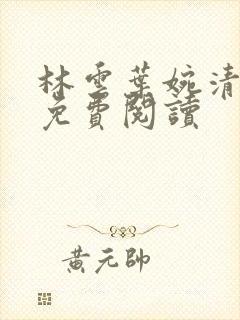 林雲葉婉清
免費閱讀
黃元帥